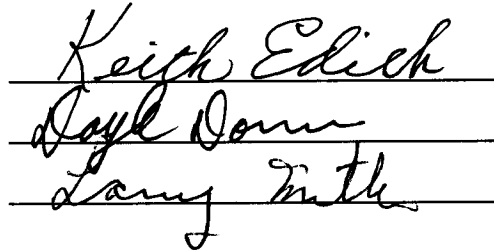 Keith Edich
Doyle Donn
Larry Smith